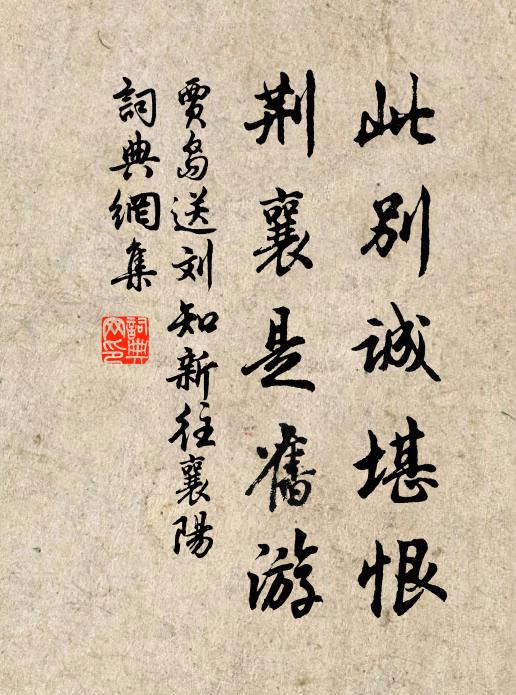 此别诚堪恨
荆襄是舊游
賈岛送刘知新往襄陽
詞典網集
詞典网印